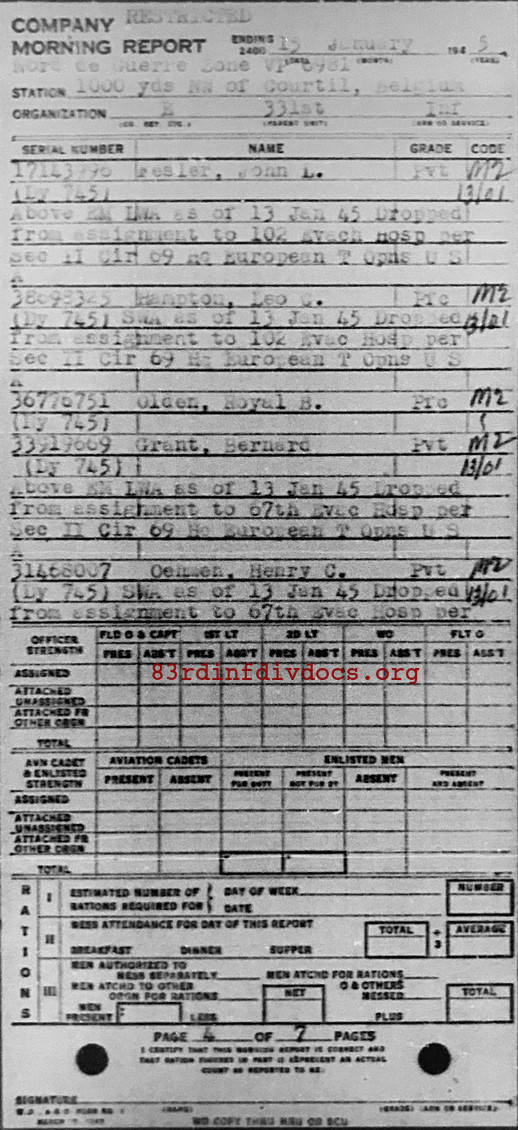 RESTRICTED
COMPANY
MORNING REPORT ENDING 2400 15 January 1945
(DATE) (MONTH) (YEAR)
Nord de Guerre Zone VP 6981
STATION 1000 yds NW of Courtil, Belgium
ORGANIZATION E 331st Inf
(CO, DET, ETC.) (PARENT UNIT) (ARM OR SERVICE)
SERIAL NUMBER NAME GRADE CODE
17143996 Kesler, John L. Pvt M2
(Dy 745) 13/01
Above EM LWA as of 13 Jan 45 Dropped
from assignment to 102 Evach Hosp per
Sec II Cir 69 Hq European T Opns U S
A
38698325 Hampton, Leo C. Pfc M2
(Dy 745) SWA as of 13 Jan 45 Dropped 13/01
from assignment to 102 Evac Hosp per
Sec II Cir 69 Hq European T Opns U S
A
36776751 Olden, Royal B. Pfc M2
(Dy 745)
33919669 Grant, Bernard Pvt M2
(Dy 745) 13/01
Above EM LWA as of 13 Jan 45 Dropped
from assignment to 67th Evac Hosp per
Sec II Cir 69 Hq European T Opns U S
A
31468007 Oehmen, Henry C. Pvt M2
(Dy 745) SWA as of 13 Jan 45 Dropped 13/01
from assignment to 67th Evac Hosp per
OFFICER STRENGTH FLD O & CAPT 1ST LT 2D LT WO FLT O
PRES ABS'T PRES ABS'T PRES ABS'T PRES ABS'T PRES ABS'T
ASSIGNED
83rdinfdivdocs.org
ATTACHED UNASSIGNED
ATTACHED FR OTHER ORGN
TOTAL
AVN CADET & ENLISTED STRENGTH AVIATION CADETS ENLISTED MEN
PRESENT ABSENT PRESENT FOR DUTY PRESENT NOT FOR DY ABSENT PRESENT AND ABSENT
ASSIGNED
ATTACHED UNASSIGNED
ATTACHED FR OTHER ORGN
TOTAL
RATIONS
I ESTIMATED NUMBER OF RATIONS REQUIRED FOR DAY OF WEEK DATE NUMBER
II MESS ATTENDANCE FOR DAY OF THIS REPORT TOTAL ÷ 3 AVERAGE
BREAKFAST DINNER SUPPER
III MEN AUTHORIZED TO MESS SEPARATELY MEN ATCHD FOR RATIONS
MEN ATCHD TO OTHER ORGN FOR RATIONS NET O & OTHERS MESSED TOTAL
MEN PRESENT LESS PLUS
PAGE 4 OF 7 PAGES
I CERTIFY THAT THIS MORNING REPORT IS CORRECT AND
THAT RATION FIGURES IN PART III REPRESENT AN ACTUAL
COUNT AS REPORTED TO ME.
SIGNATURE
W.D., A.G.O. FORM NO. 1 (NAME) (GRADE) (ARM OR SERVICE)
NO COPY THRU MRU OR SCU